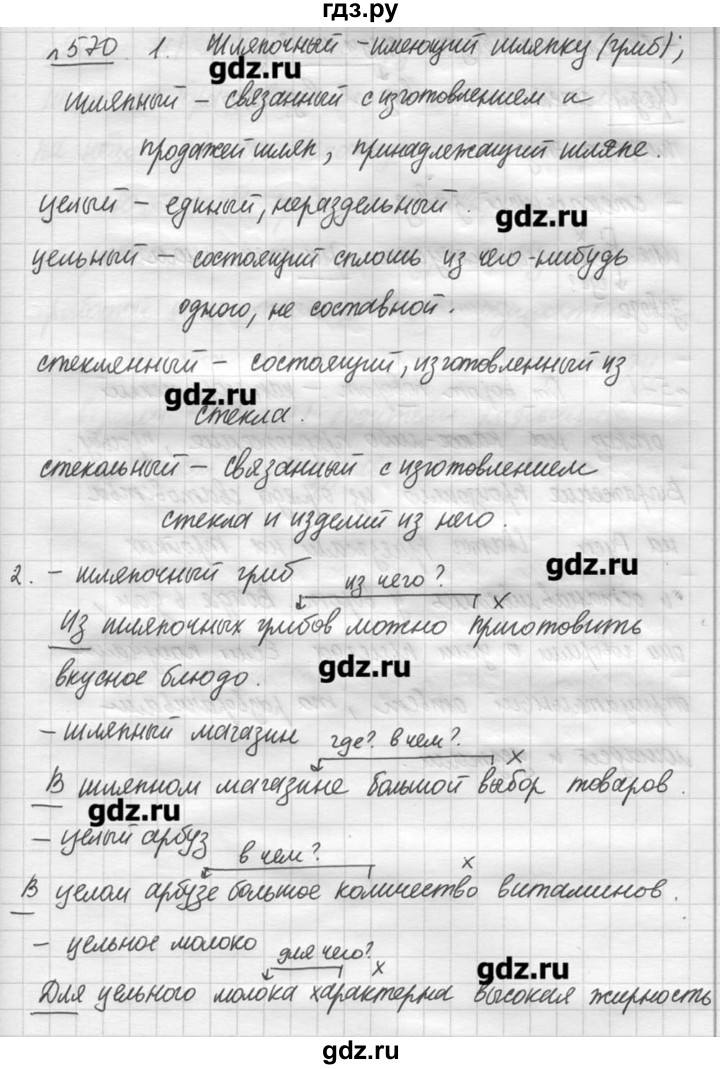 гдз.ру
n 570 1. Шляпочный - имеющий шляпку (гриб);
gdz.ru
шляпный - связанный с изготовлением и
продажей шляп, принадлежащий шляпе.
целый - единый, нераздельный.
gdz.ru
цельный - состоящий сплошь из чего-нибудь
одного, не составной.
стеклянный - состоящий, изготовленный из
gdz.ru
стекла.
стекольный - связанный с изготовлением
стекла и изделий из него.
gdz.ru
2. - шляпочный гриб из чего? х
Из шляпочных грибов можно приготовить
gdz.ru
вкусное блюдо.
- шляпный магазин где? в чем? х
В шляпном магазине большой выбор товаров.
gdz.ru
- целый арбуз в чем? х
В целом арбузе большое количество витаминов.
- цельное молоко для чего? х
gdz.ru
Для цельного молока характерна высокая жирность
gdz.ru